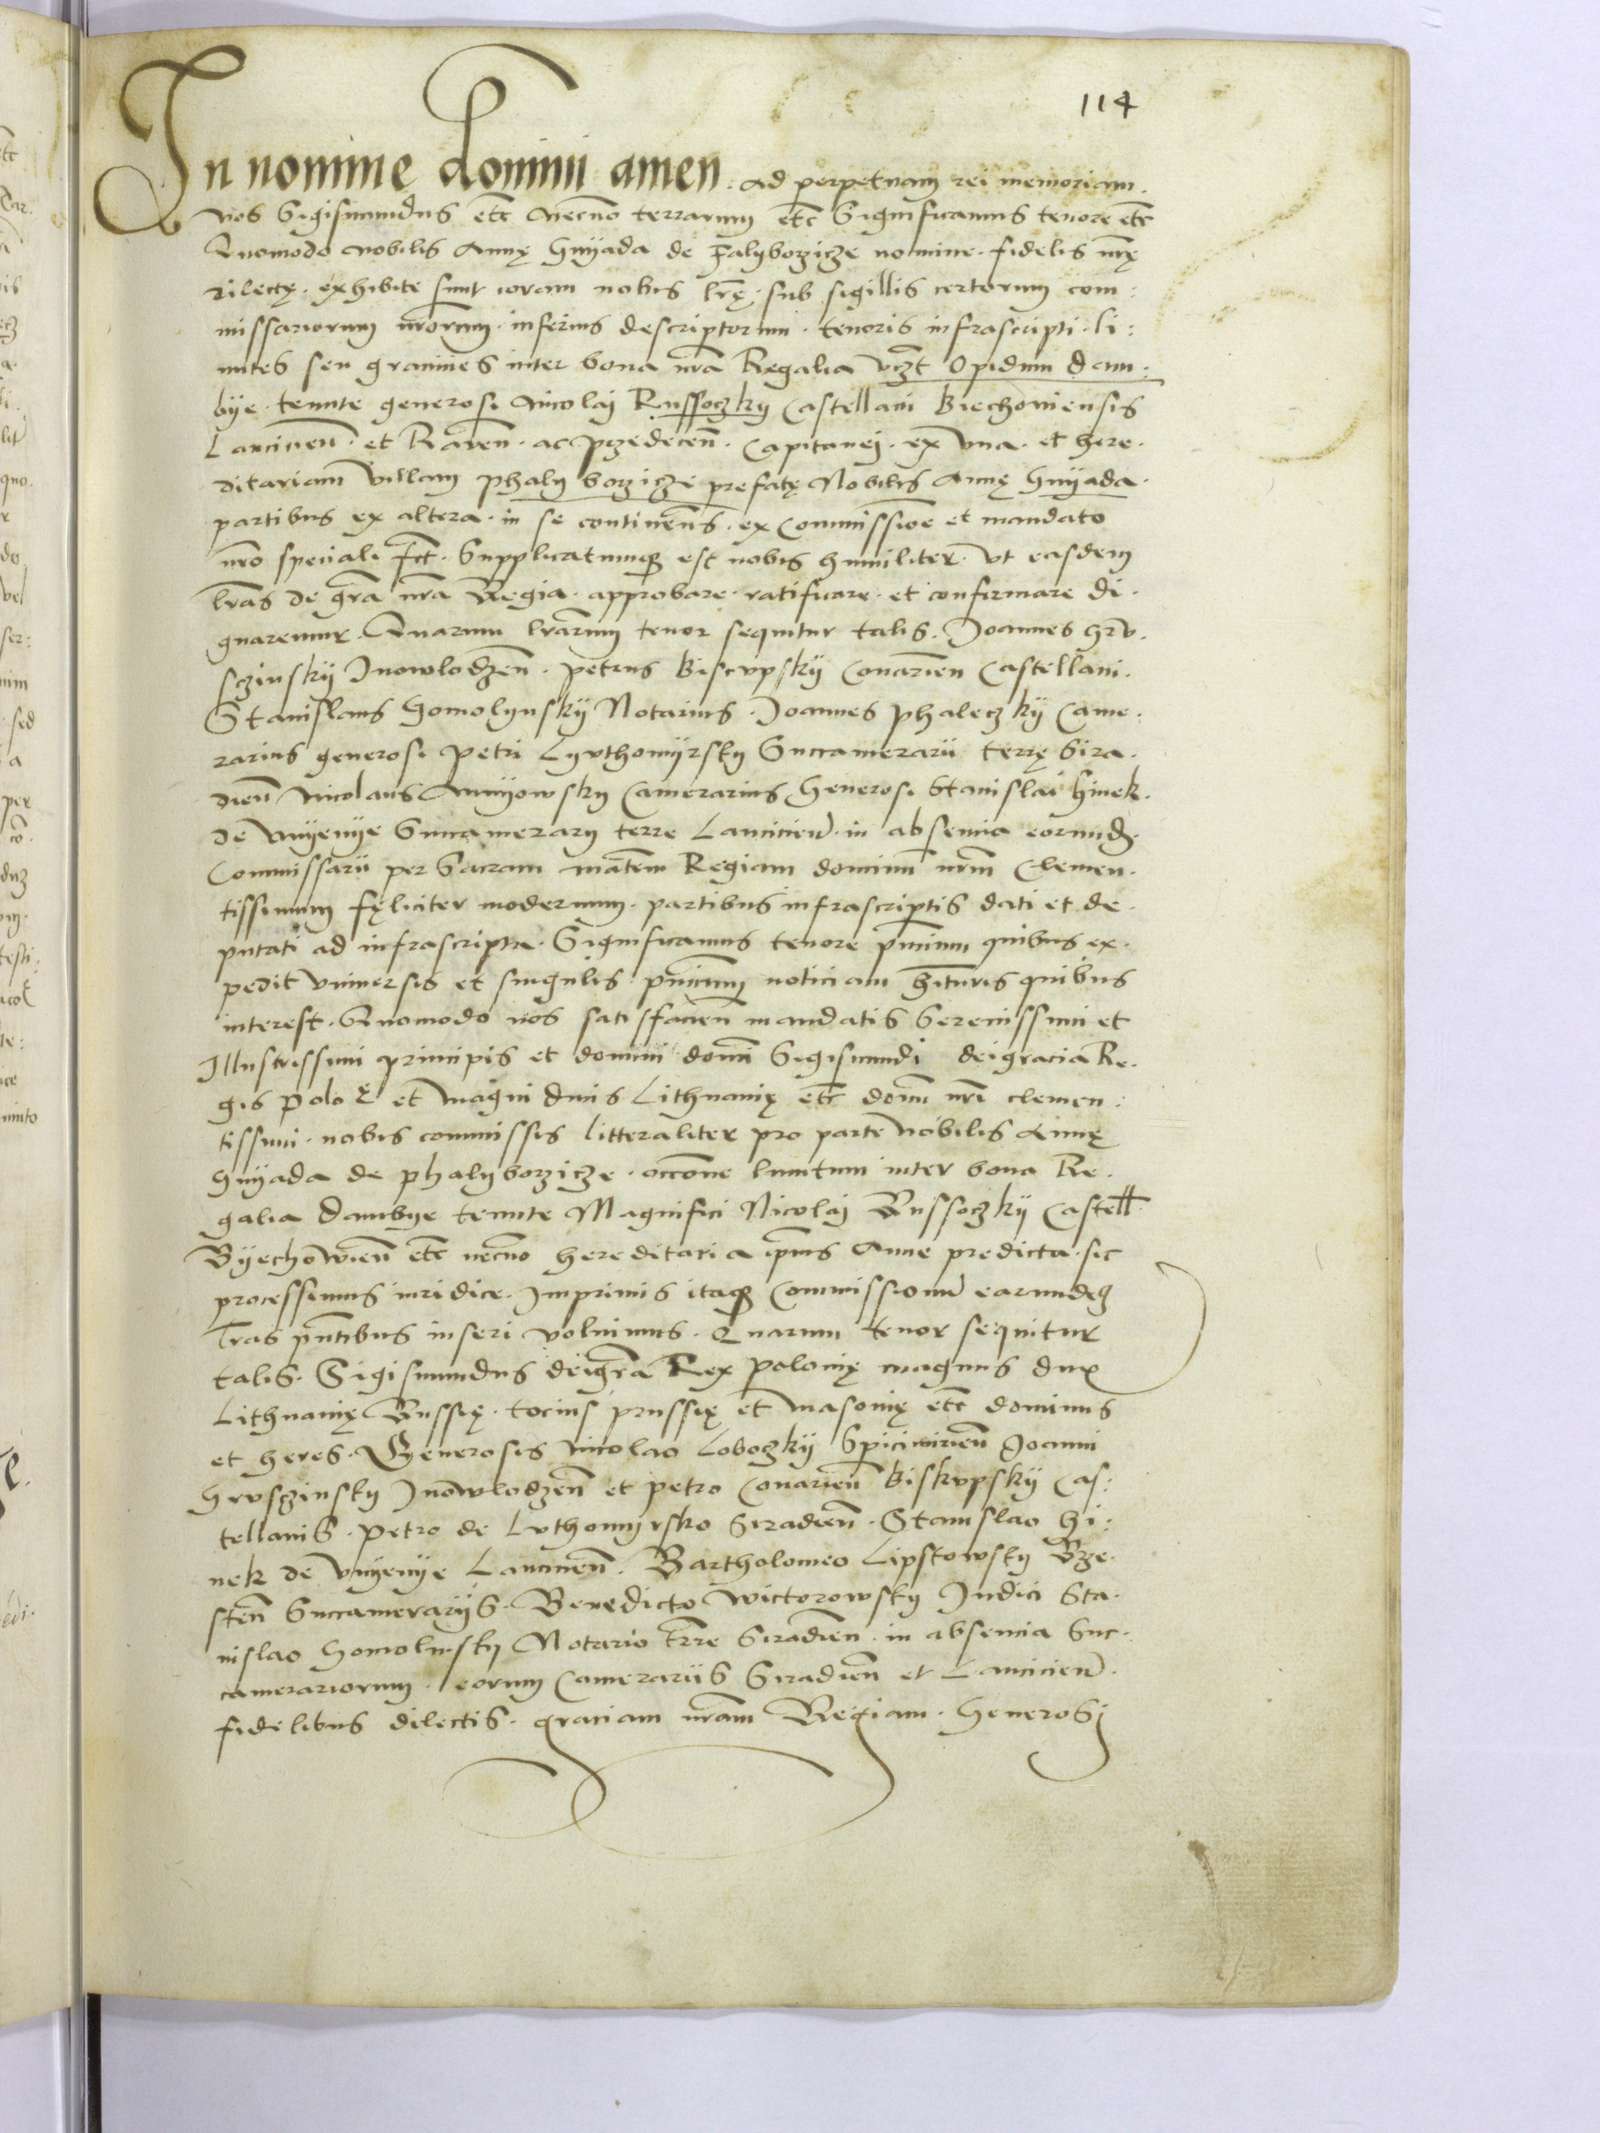 114
In nomine domini amen. ad perpetuam rei memoriam.
Nos Sigismundus etc Necno terrarum etc Significamus tenore etc
Quomodo nobilis Annę Gnyada de Falyborzicze nomine. fidelis nrę
dilectę. exhibite sunt coram nobis lrę. sub sigillis certorum com:
missariorum nrorum. inferius descriptorum. tenoris infrascripti. li:
mites seu granities inter bona nra Regalia vczt Opidum dam:
bye. tenute generosi Nicolaj Russoczky Castellani Biechoviensis
Lancicien. et Raven. ac Przedecen. Capitanej. ex una. et here.
ditariam villam Phalyborzicze prefatę Nobilis Annę Gnyada.
partibus ex altera. in se continens. ex Commissione et mandato
nro speciali fct. Supplicatumq est nobis humiliter. Vt easdem
lras de gra nra Regia. approbare. ratificare. et confirmare di.
gnaremur. Quarum lrarum tenor sequitur talis. Joannes Hrv.
sczinskij Jnowlodzen. Petrus Biscvpskij Conarien Castellani.
Stanislaus Gomolynskij Notarius. Joannes Phaleczkij Came:
rarius generosi Petri Lyvthomyrsky Succamerarii terrę Sira.
dien Nicolaus Camerarius Generosi Stanislai Hinek.
de Vnyenye Succamerarij terre Lancicien. in absencia eorund.
Commissarii per Sacram matem Regiam dominum nrm Clemen.
tissimum fęliciter modernum. partibus infrascriptis dati et de.
putati ad infrascripta. Significamus tenore pntium quibus ex.
pedit vniversis et singulis pntium noticiam hituris quibus
interest. Quomodo nos satisfacien mandatis Serenissimi et
Jllustrissimi principis et domini domi Sigismundi deigracia Re.
gis Polo ę et Magni ducis Lithuanię etc domi nri clemen:
tissimi. nobis commissis litteraliter pro parte Nobilis Annę
Gnyada de Phalyborzicze. occone limitum inter bona Re.
galia Dambye tenute Magnifici Nicolaj Russoczkij Castell.
Byechowien etc necno hereditaria ipius Anne predicta. sic
processimus iuridice. Jmprimis itaq Commissionu earundeq
lras pntibus inseri voluimus. Quarum tenor sequitur
talis. Sigismundus deigra Rex Polonię magnus dux
Lithuanię Russię. tocius Prussię et Masovię etc dominus
et heres. Generosis Nicolao Loboczkij Spicimirien Joanni
Hrvsczinsky Jnowlodzen et Petro Conarien Biskvpskij Cas:
tellanis. Petro de Lvthomyrsko Siradien. Stanislao Hi:
nek de Vnyenye Lancicien. Bartholomeo Lipstowsky Brze.
sten Succamerarijs. Benedicto Wictorowsky Judici Sta.
nislao Gomolinsky Notario terre Siradien. in absencia Suc.
camerariorum. eorum Camerariis Siradien et Lancicien.
fidelibus dilectis. graciam nram Regiam. Generosi